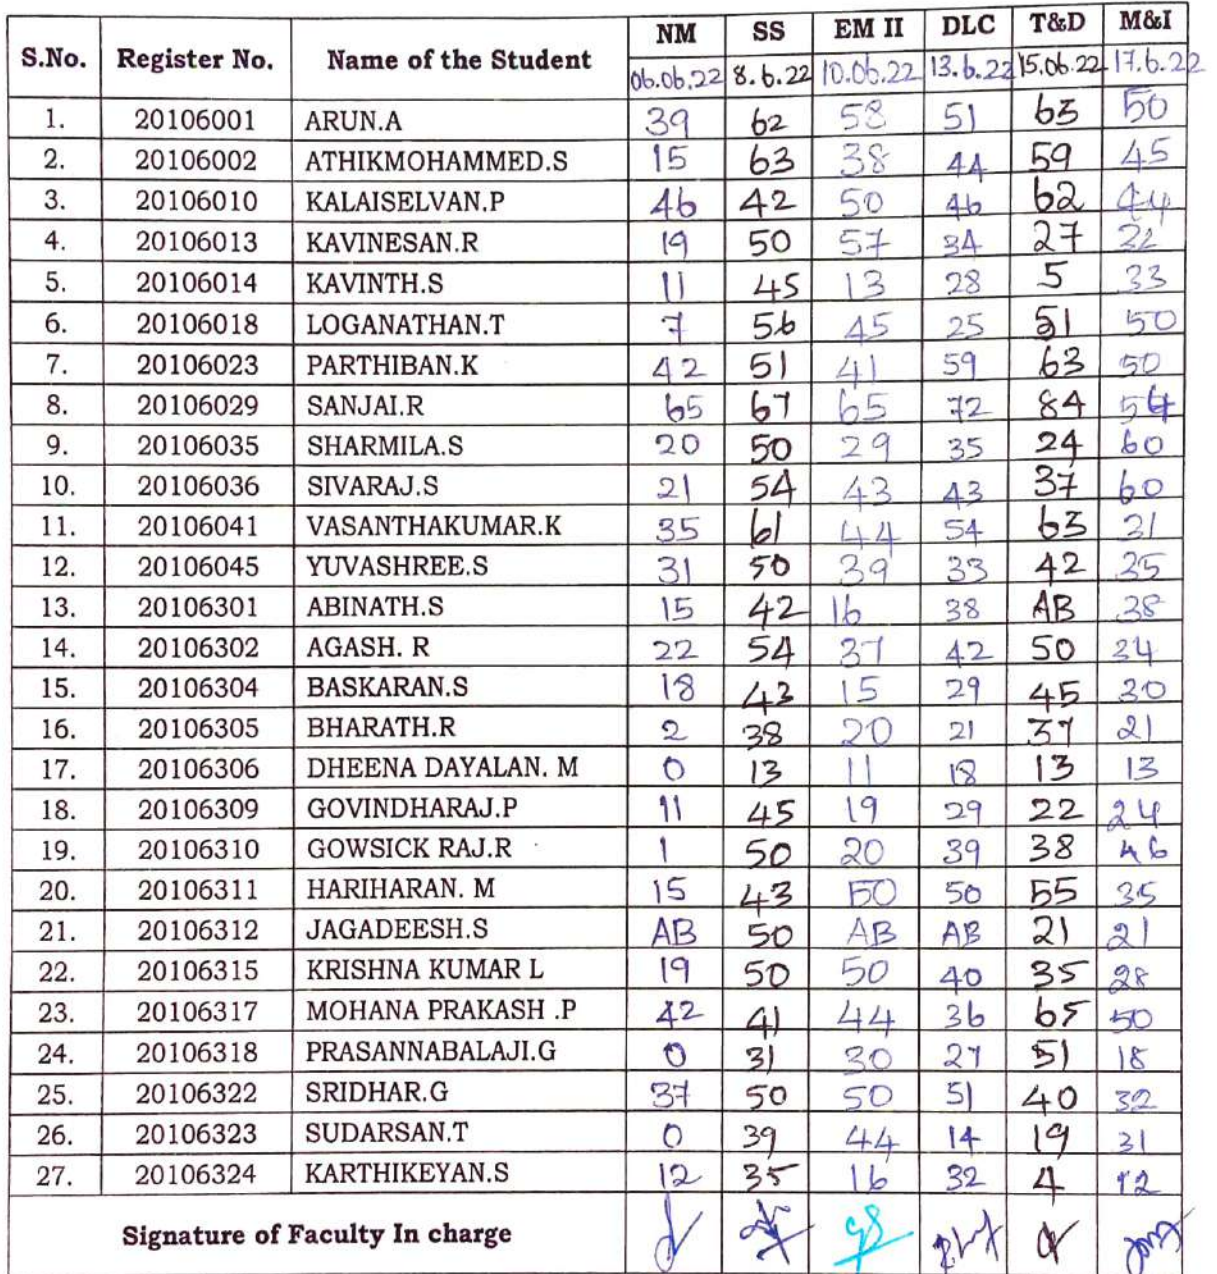 S.No. Register No. Name of the Student NM SS EM II DLC T&D M&I
06.06.22 8.6.22 10.06.22 13.6.22 15.06.22 17.6.22
1. 20106001 ARUN.A 39 62 58 51 63 50
2. 20106002 ATHIKMOHAMMED.S 15 63 38 44 59 45
3. 20106010 KALAISELVAN.P 46 42 50 46 62 44
4. 20106013 KAVINESAN.R 19 50 57 34 27
5. 20106014 KAVINTH.S 11 45 13 28 5 33
6. 20106018 LOGANATHAN.T 7 56 45 25 51 50
7. 20106023 PARTHIBAN.K 42 51 41 59 63 50
8. 20106029 SANJAI.R 65 67 65 72 84 54
9. 20106035 SHARMILA.S 20 50 29 35 24 60
10. 20106036 SIVARAJ.S 21 54 43 43 37 60
11. 20106041 VASANTHAKUMAR.K 35 61 44 54 63 31
12. 20106045 YUVASHREE.S 31 50 39 33 42 35
13. 20106301 ABINATH.S 15 42 16 38 AB 38
14. 20106302 AGASH. R 22 54 37 42 50 34
15. 20106304 BASKARAN.S 18 43 15 29 45 30
16. 20106305 BHARATH.R 2 38 20 21 37 21
17. 20106306 DHEENA DAYALAN. M 0 13 11 18 13 13
18. 20106309 GOVINDHARAJ.P 11 45 19 29 22 24
19. 20106310 GOWSICK RAJ.R 1 50 20 39 38 46
20. 20106311 HARIHARAN. M 15 43 50 50 55 35
21. 20106312 JAGADEESH.S AB 50 AB AB 21 21
22. 20106315 KRISHNA KUMAR L 19 50 50 40 35 28
23. 20106317 MOHANA PRAKASH .P 42 41 44 36 65 50
24. 20106318 PRASANNABALAJI.G 0 31 30 27 51 18
25. 20106322 SRIDHAR.G 37 50 50 51 40 32
26. 20106323 SUDARSAN.T 0 39 44 14 19 31
27. 20106324 KARTHIKEYAN.S 12 35 16 32 4 12
Signature of Faculty In charge